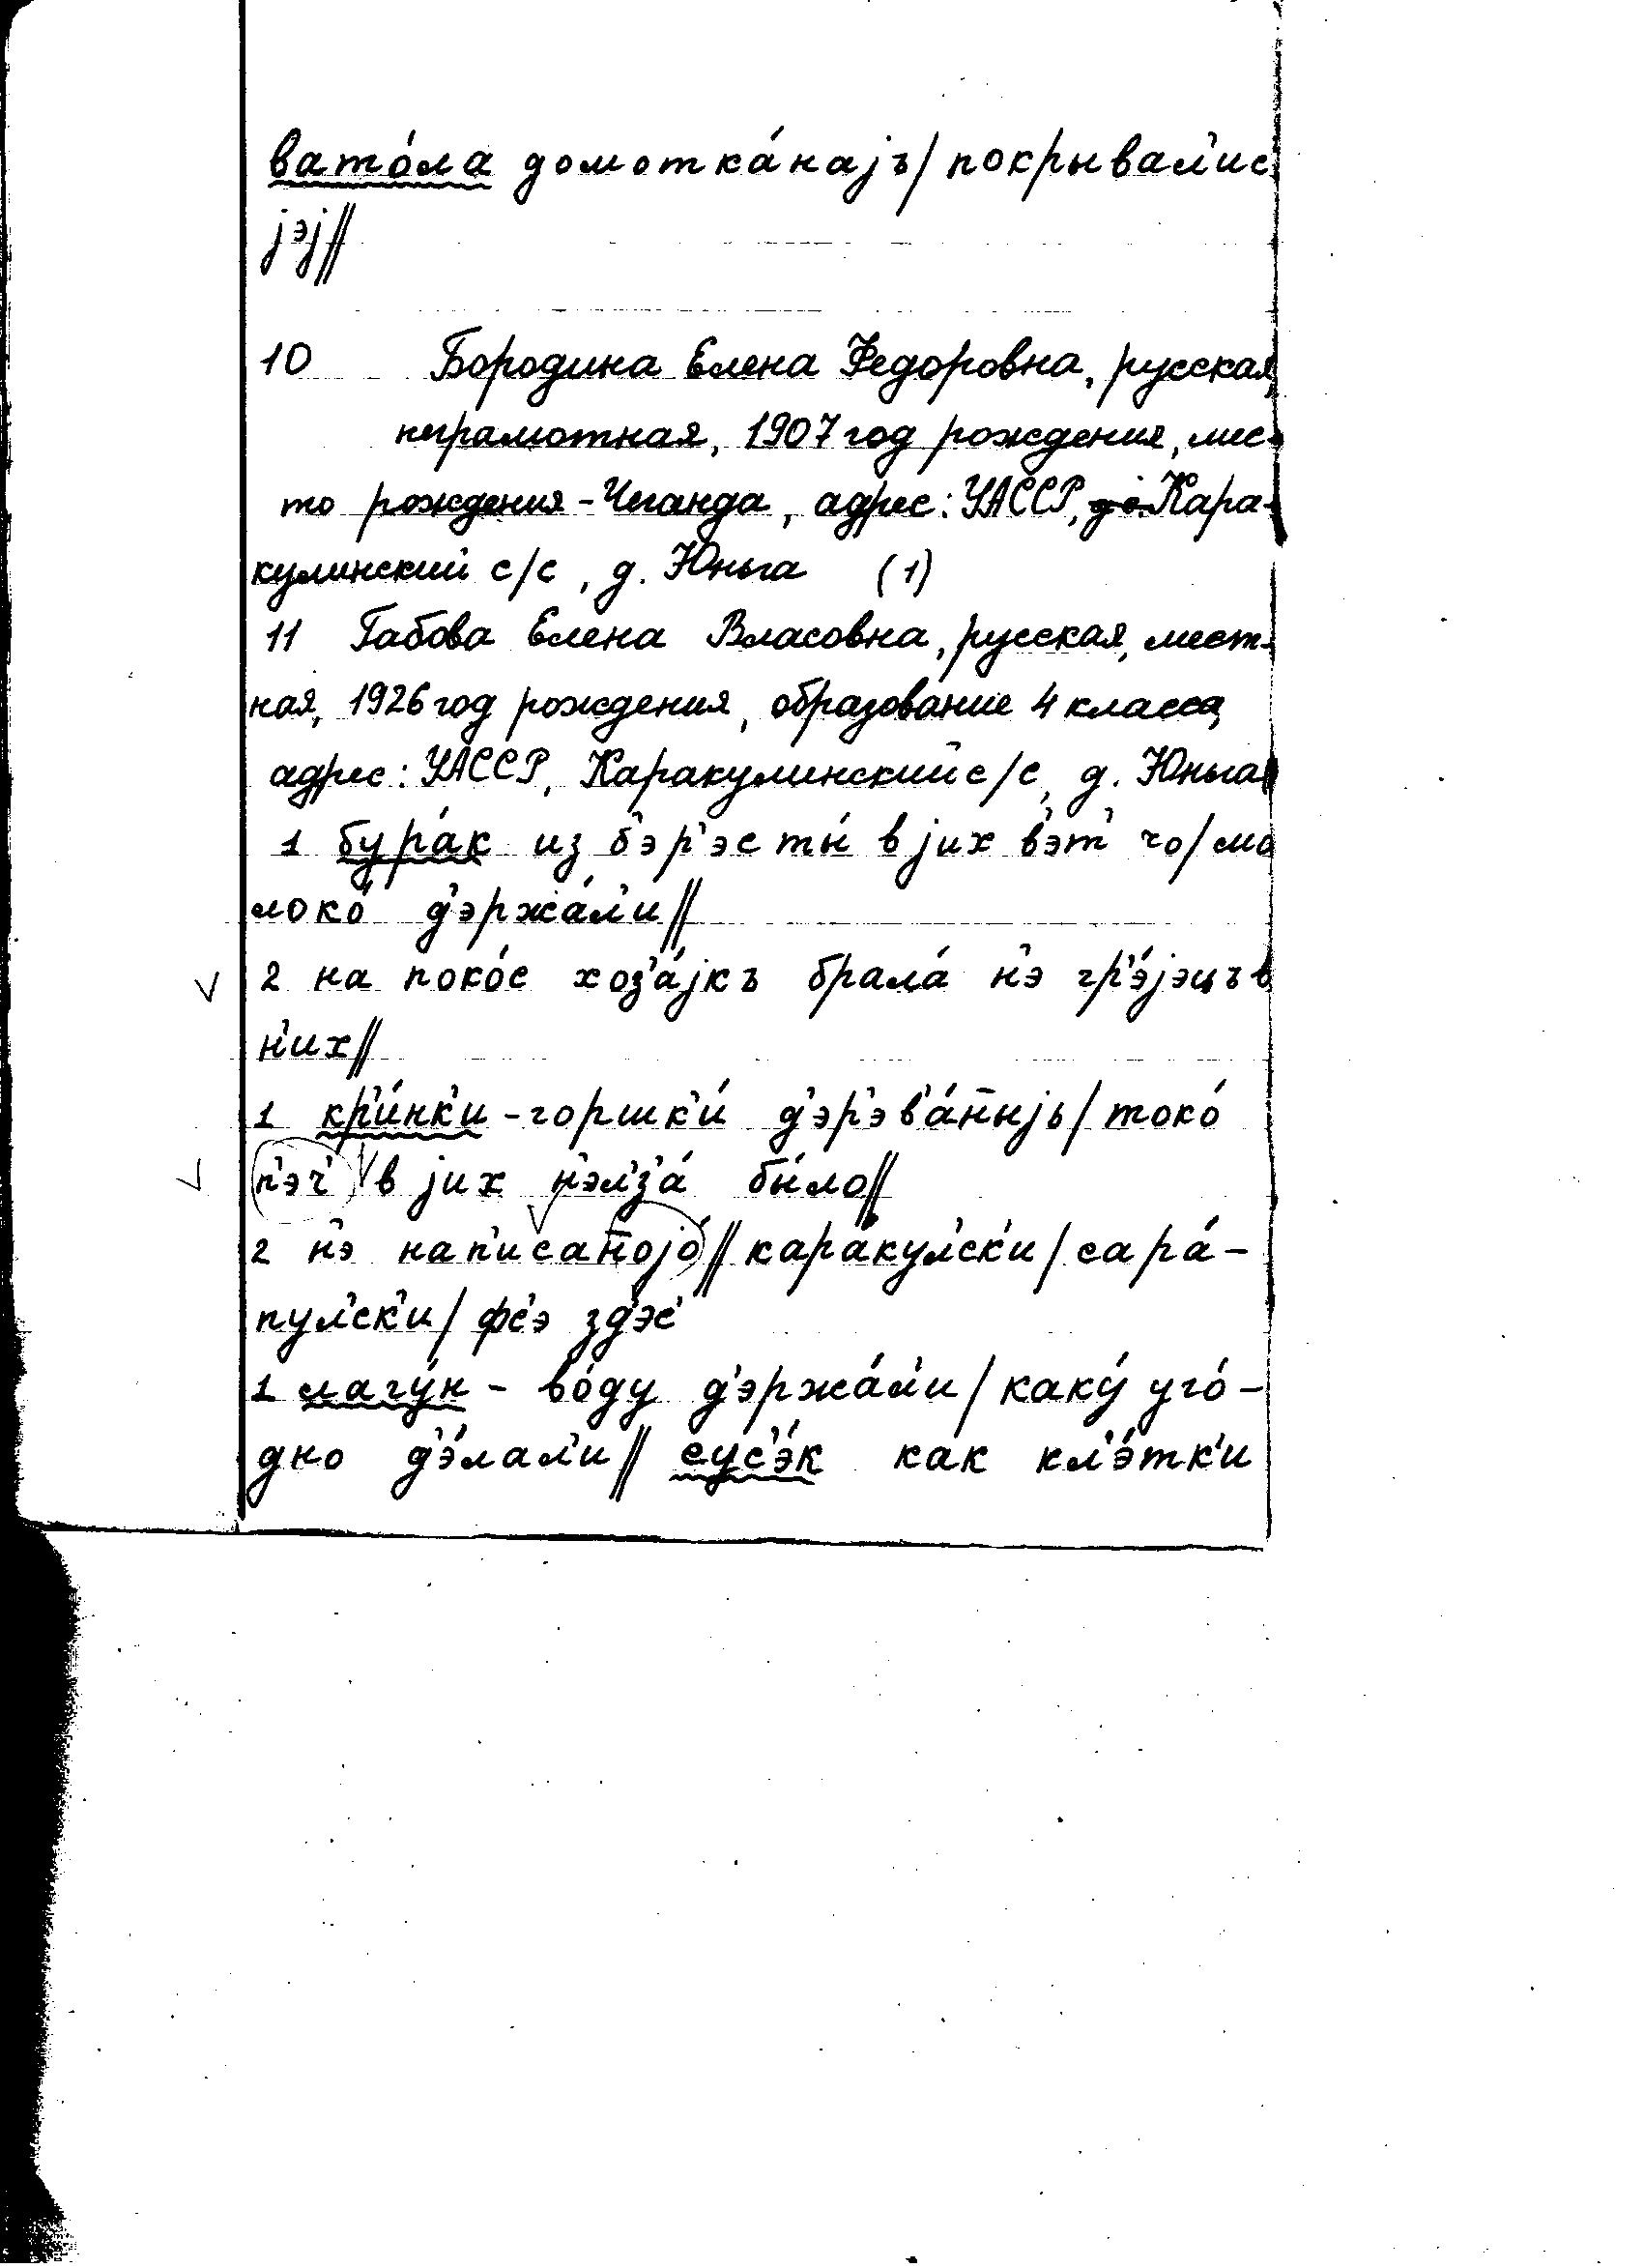 вато́ла домотка́наjъ/ покрывал'ис'
jэj//
10 Бородина Елена Федоровна, русская,
неграмотная, 1907 год рождения, мес-
то рождения - Чеганда, адрес: УАССР, Кара-
кулинский с/с, д. Юньга (1)
11 Габова Елена Власовна, русская, мест-
ная, 1926 год рождения, образование 4 класса,
адрес: УАССР, Каракулинский с/с, д. Юньга
1 бура́к из б'эр'эсты́ в jих в'эт' чо/ мо
локо́ д'эржа́л'и//
2 на поко́с хоз'а́jкъ брала́ н'э гр'э́jэцъ в
н'их//
1 кр'и́нк'и - горшк'и́ д'эр'эв'а́н̄ыjь/ токо́
п'эч' в jих н'эл'з'а́ бы́ло//
2 н'э нап'исан̄оjо́// кара́кул'ск'и/ сара́-
пул'ск'и/ фс'э зд'эс'
1 лагу́н - во́ду д'эржа́л'и/ каку́ уго́-
дно д'э́лал'и// сус'э́к как кл'э́тк'и